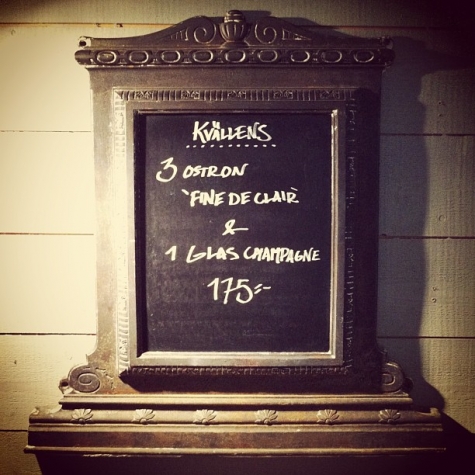 KVÄLLENS
3 OSTRON
'FINE DE CLAIR'
&
1 GLAS CHAMPAGNE
175:-